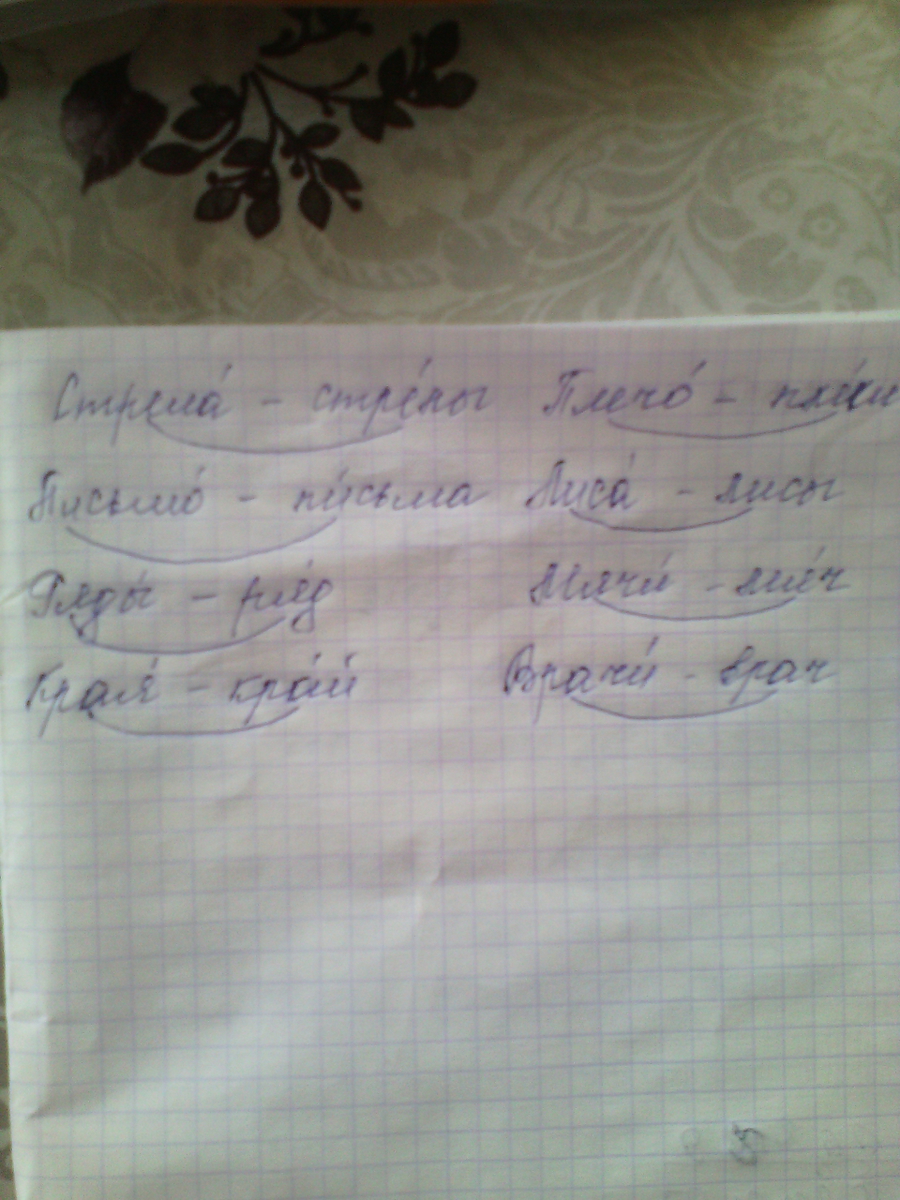 Стрела́ - стре́лы Плечо́ - пле́чи
Письмо́ - пи́сьма Лиса́ - лисы
Ряды́ - ря́д Мячи́ - мя́ч
Края́ - кра́й Врачи́ - врач